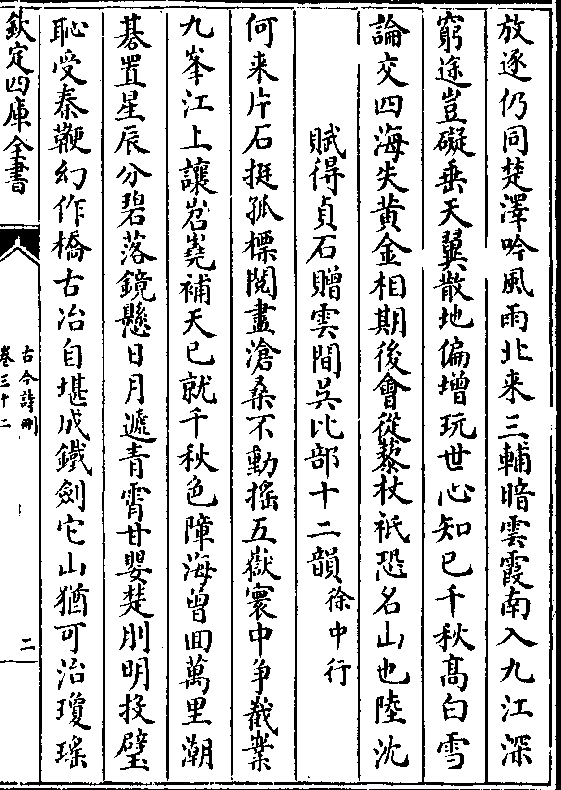 放逐仍同楚澤吟風雨北来三輔暗雲霞南入九江深
窮途豈礙垂天翼散地偏增玩世心知已千秋髙白雪
論交四海失黄金相期後會從藜杖祇恐名山也陸沈
賦得貞石贈雲間吴比部十二韻徐中行
何来片石挺孤標閲盡滄桑不動摇五嶽寰中争嶻嶪
九峯江上讓岧嶤補天已就千秋色障海曽回萬里潮
碁置星辰分碧落鏡懸日月遞青霄甘嬰楚刖明投璧
恥受秦鞭幻作橋古冶自堪成鐵劍它山猶可治瓊瑤
欽定四庫全書
古今詩刪
卷三十二
二